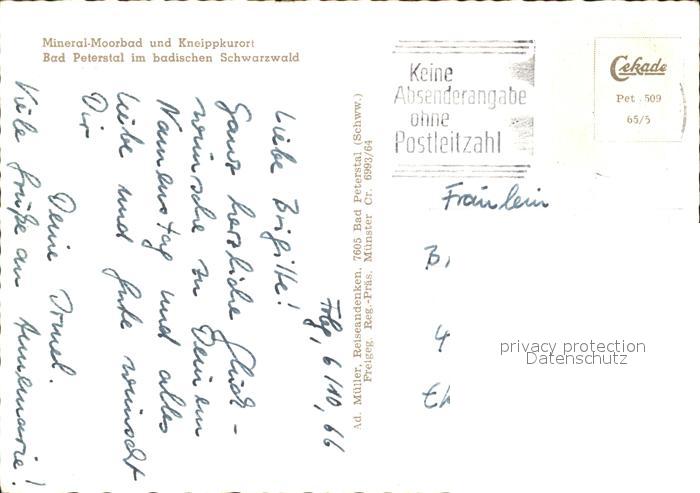 Mineral-Moorbad und Kneippkurort
Bad Peterstal im badischen Schwarzwald
Keine
Absenderangabe
ohne
Postleitzahl
Cekade
Pet 509
65/5
Fbg, 6/10, 66
Liebe Brigitte!
Ganz herzliche Glück-
wünsche zu Deinem
Namenstag und alles
Liebe und Gute wünscht
Dir
Deine Irmel.
Viele Grüße an Annemarie!
Ad. Müller, Reiseandenken, 7605 Bad Peterstal (Schww.)
Freigeg. Reg.-Präs. Münster Cr. 6993/64
Fräulein
B,
4
privacy protection
Datenschutz